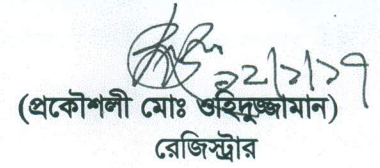 ১২/১/১৭
(প্রকৌশলী মোঃ ওহিদুজ্জামান)
রেজিস্ট্রার